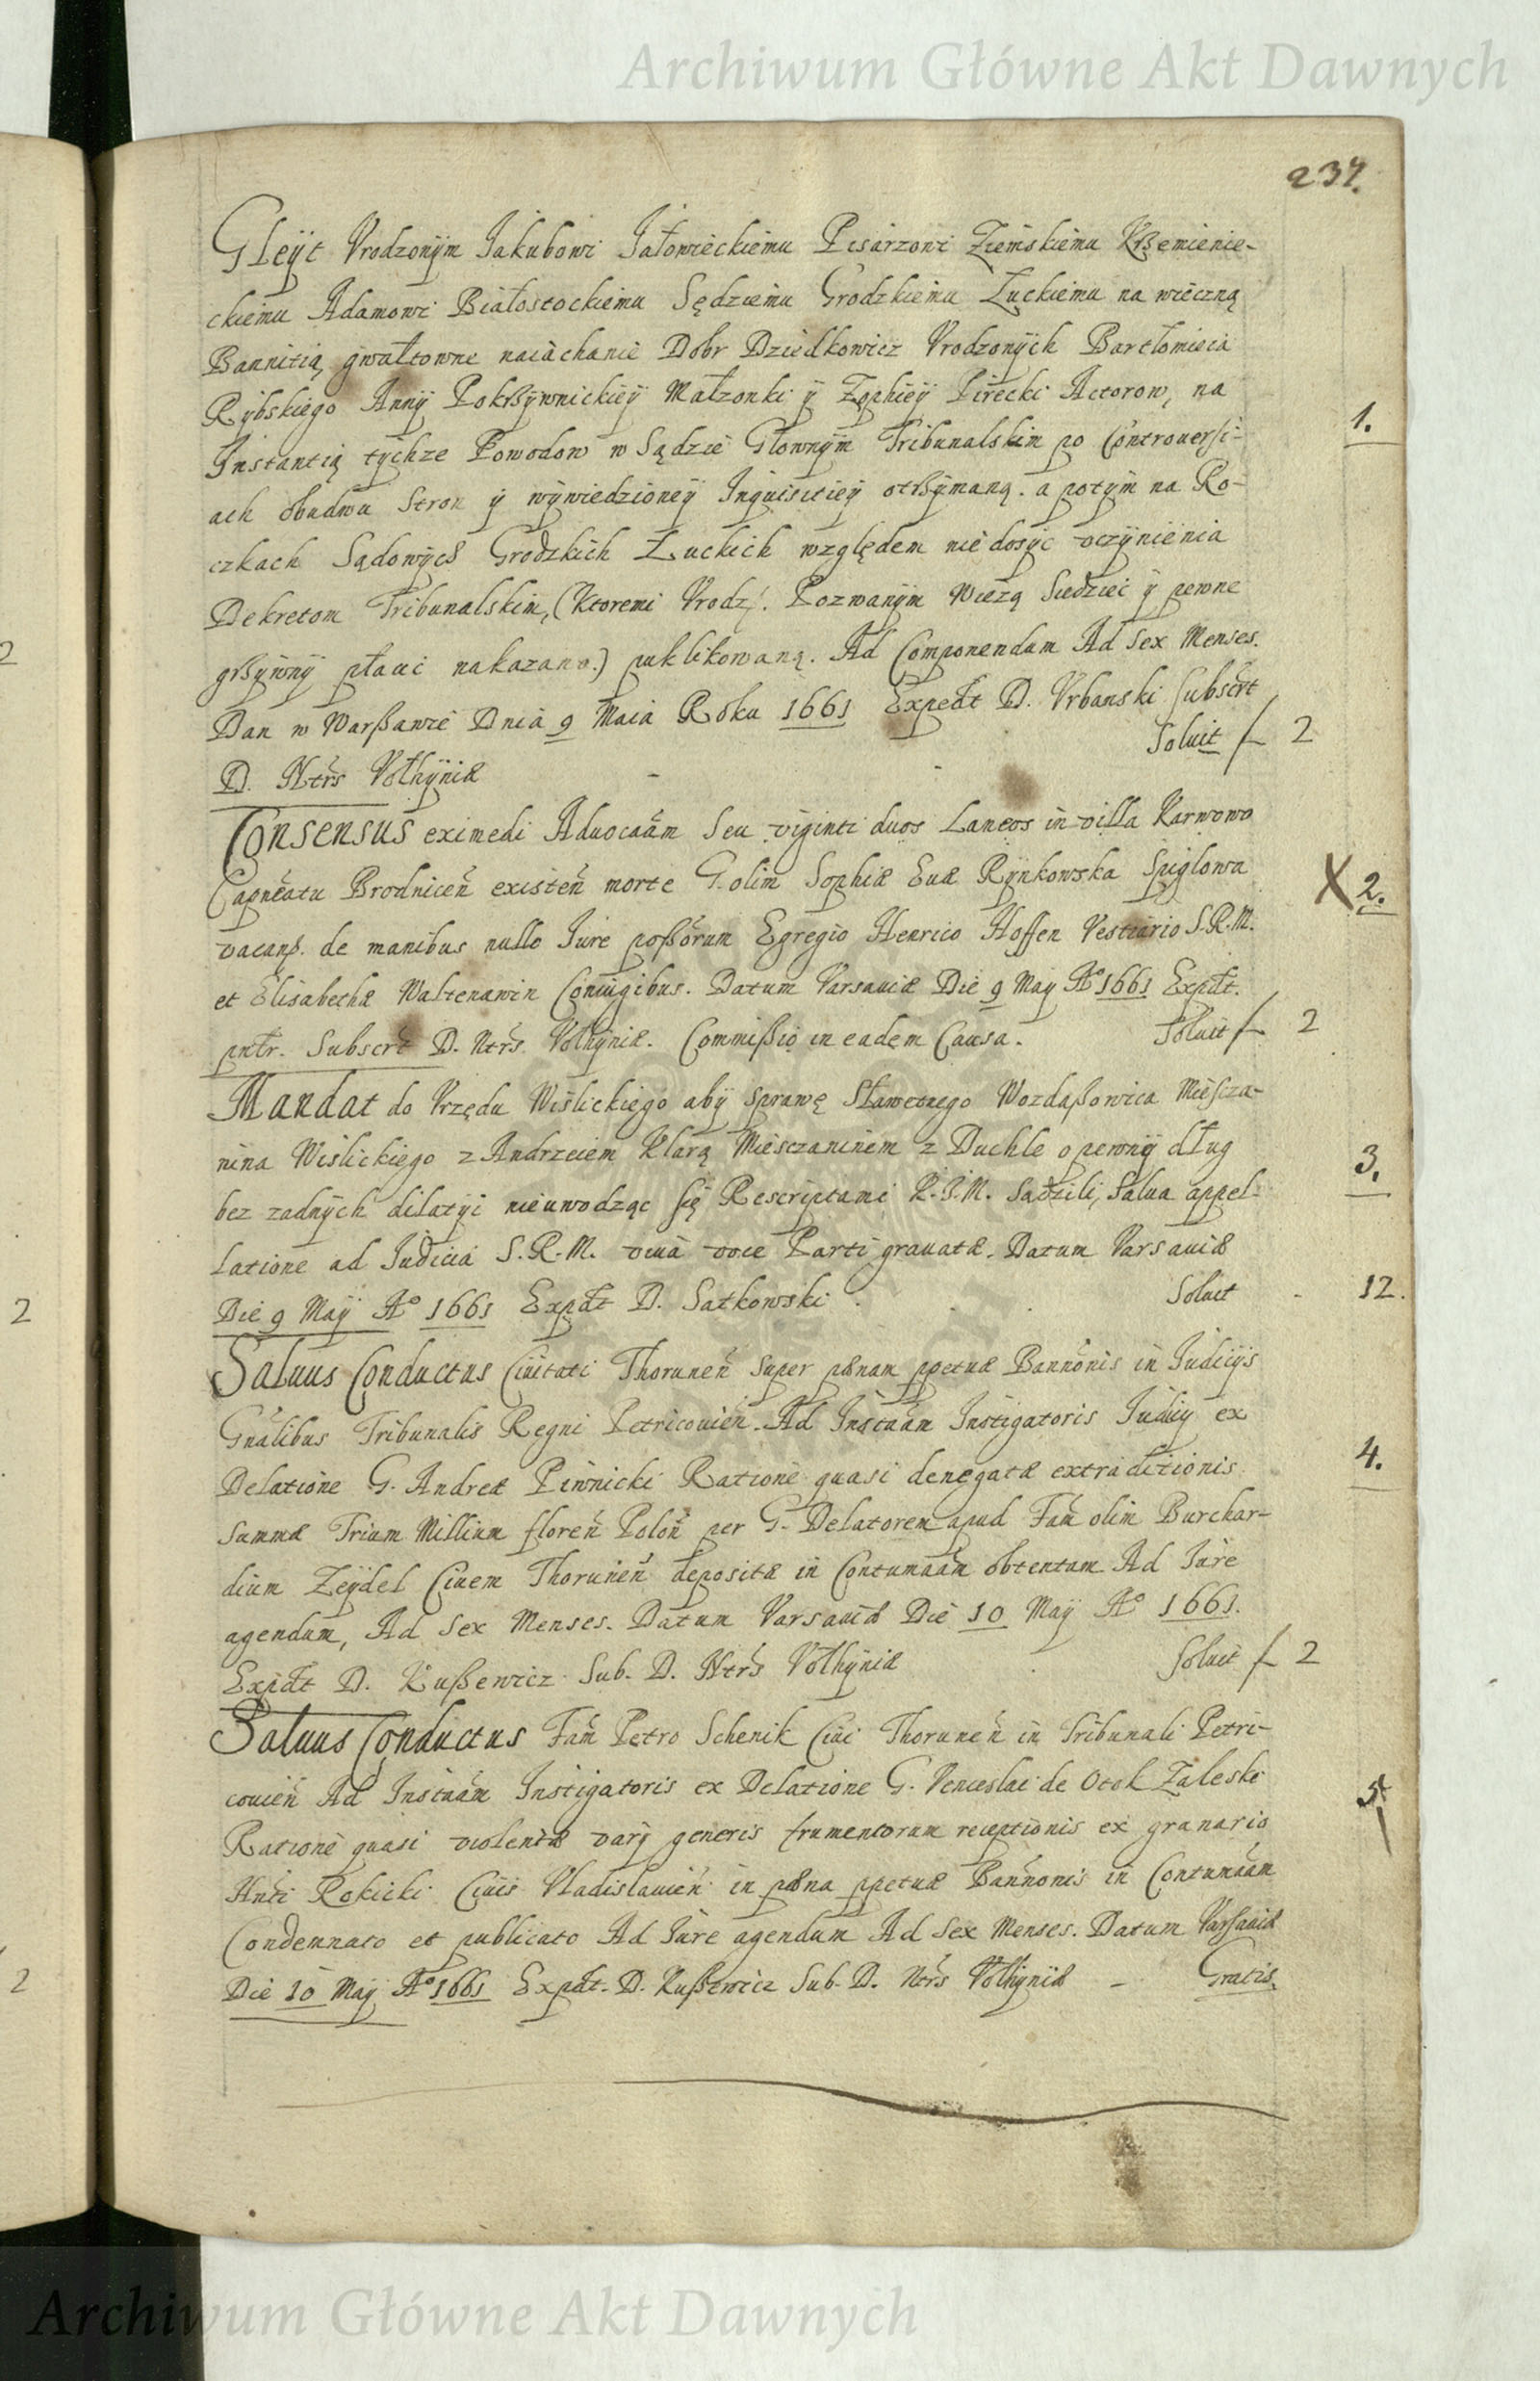 Archiwum Główne Akt Dawnych
237.
Gleÿt Vrodzonÿm Jakubowi Jałowieckiemu Pisarzowi Ziemskiemu Krzemienie-
ckiemu Adamowi Białostockiemu Sędziemu Grodzkiemu Łuckiemu na wieczną
Bannitią, gwałtowne naiachanie Dobr Dziedkowicz Vrodzonÿch Barctłomieia
Rÿbskiego Annÿ Pokrßÿwnickieÿ Małzonki ÿ Zophieÿ Pirecki Actorow, na
1.
Jnstantią tÿchze Powodow w Sądzie Głownÿm Tribunalskim po Controuersi-
ach obudwu Stron ÿ wÿwiedzioneÿ Jnquisitieÿ otrßÿmaną. a potÿm na Ro-
czkach Sądowÿch Grodzkich Łuckich względem nie dosÿc vczÿnienia
Dekretom Tribunalskim, (Ktoremi Vrodz: Pozwanÿm Wiezą Siedziec ÿ pewne
grßÿwnÿ płacic nakazano.) puklikowaną. Ad Componendum Ad Sex Menses.
Dan w Warßawie Dnia 9 Maia Roku 1661 Expedt D. Vrbanski Subscrt
D. Ntrs Volhÿniæ - - Soluit f 2
Consensus eximedi Aduocaãm Seu viginti duos Laneos in villa Karwowo
Capneatu Brodniceñ existeñ morte G. olim Sophiæ Euæ Rÿnkowska Spiglowa
X 2.
vacanß. de manibus nullo Jure poßorum Egregio Henrico Hoffen Vestiario S.R.M.
et Elisabethæ Waltenawin Coniugibus. Datum Varsauiæ Die 9 Maÿ Aº 1661 Expdt.
pntr. Subscrt D. Ntrs Volhÿniæ. Commißio in eadem Causa. Soluit f 2
Mandat do Vrzędu Wislickiego abÿ sprawę Sławetnego Wozdaßowica Miescza-
nina Wislickiego z Andrzeiem Klarą Miesczaninem z Duchle o pewnÿ dług
3.
bez zadnÿch dilatÿi nieuwodząc się Rescriptami K.J.M. Sądzili, Salua appel-
latione ad Judicia S.R.M. viua voce Parti grauatæ. Datum Varsauiæ
Die 9 Maÿ Aº 1661 Expdt D. Satkowski . Soluit - 12.
Saluus Conductus Ciuitati Thoruneñ super pænam ppetuæ Bannonis in Judicÿs
Gnalibus Tribunalis Regni Petricouieñ. Ad Instnãm Instigatoris Judicÿ ex
4.
Delatione G. Andreæ Piwnicki Ratione quasi denegatæ extraditionis
summæ Trium Millium floreñ Poloñ per G. Delatorem apud Fam̃ olim Burchar-
dium Zeÿdel Ciuem Thoruneñ depositæ in Contumaãm obtentam Ad Jure
agendum, Ad Sex Menses. Datum Varsauiæ Die 10 Maÿ Aº 1661.
Expdt D. Kußewicz Sub. D. Ntrs Volhÿniæ . Soluit f 2
Saluus Conductus Fam̃ Petro Schenik Ciui Thoruneñ in Tribunali Petri-
couieñ Ad Instnãm Instigatoris ex Delatione G. Venceslai de Otok Zaleski
5
Ratione quasi violentæ varÿ generis frumentorum receptionis ex granario
Hnti Rokicki Ciuis Vladislauieñ in pæna ppetuæ Bannonis in Contumaãm
Condemnato et publicato Ad Jure agendum Ad Sex Menses. Datum Varsauiæ
Die 10 Maÿ Aº 1661 Expdt. D. Kußewicz Sub. D. Ntrs Volhÿniæ - Gratis.
2
2
2
Archiwum Główne Akt Dawnych